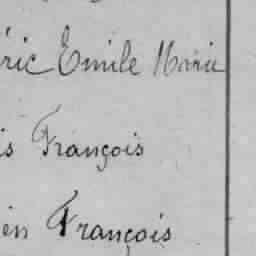 ric Emile Marie
is François
en François